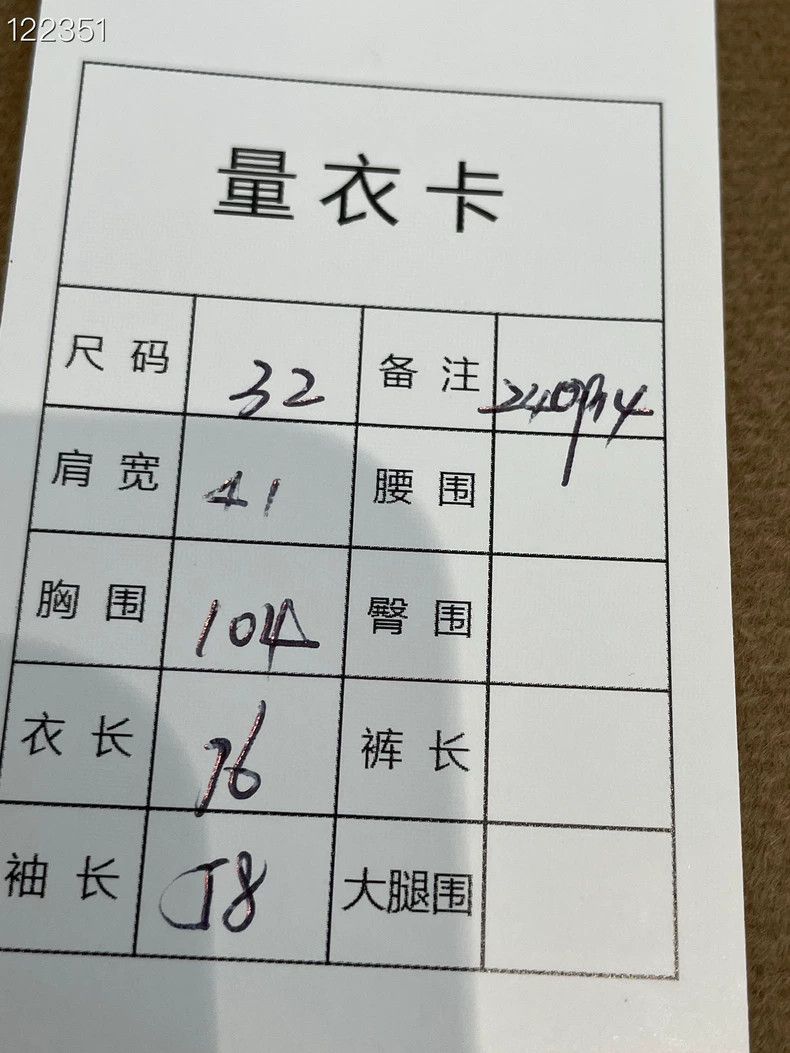 122351
量衣卡
尺码 32 备注
肩宽 41 腰围
胸围 104 臀围
衣长 76 裤长
袖长 58 大腿围